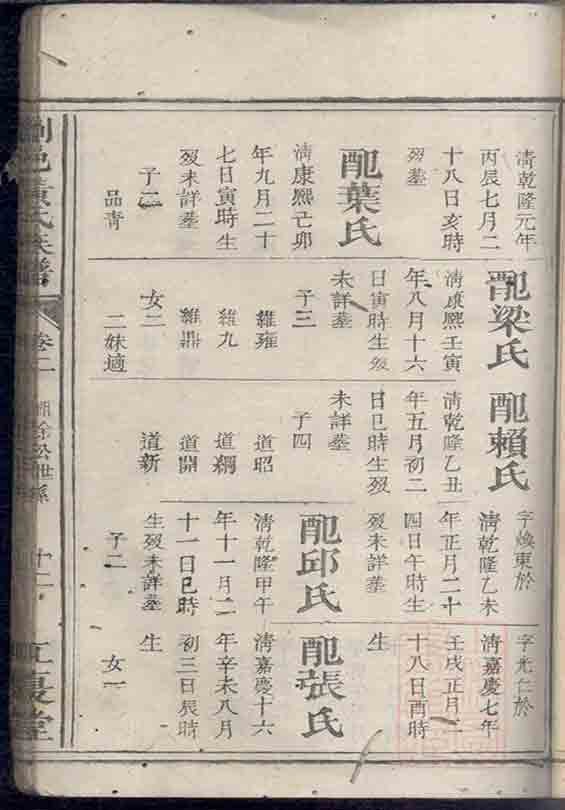 清乾隆元年
丙辰七月二
十八日亥時
歿墓
配葉氏
清康熙己卯
年九月二十
七日寅時生
歿未詳墓
子二
品青
配梁氏
清康熙壬寅
年八月十六
日寅時生歿
未詳墓
子三
維雍
維九
維鼎
女二
二妹適
配賴氏
清乾隆乙丑
年五月初二
日巳時生歿
未詳墓
子四
道昭
道綱
道開
道新
字煥東於
清乾隆乙未
年正月二十
四日午時生
歿未詳墓
配邱氏
清乾隆甲午
年十一月二
十一日巳時
生歿未詳墓
子二
字光仁於
清嘉慶七年
壬戌正月二
十八日酉時
生
配張氏
清嘉慶十六
年辛未八月
初三日辰時
生
女一
邑黃氏族譜
卷二
徐松世系
十二
江夏堂